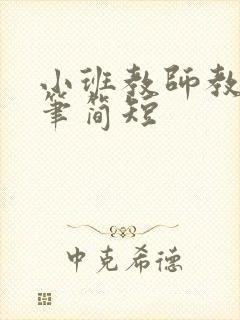 小班教師教
筆简短
中克希德